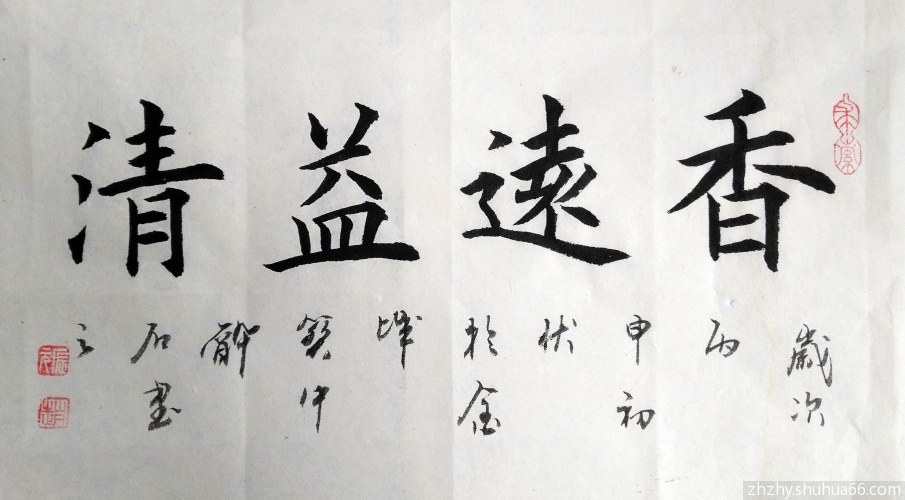 香遠益清
歲次
丙
申初
伏
於金
城
石書
之
zhzhyshuhua66.com